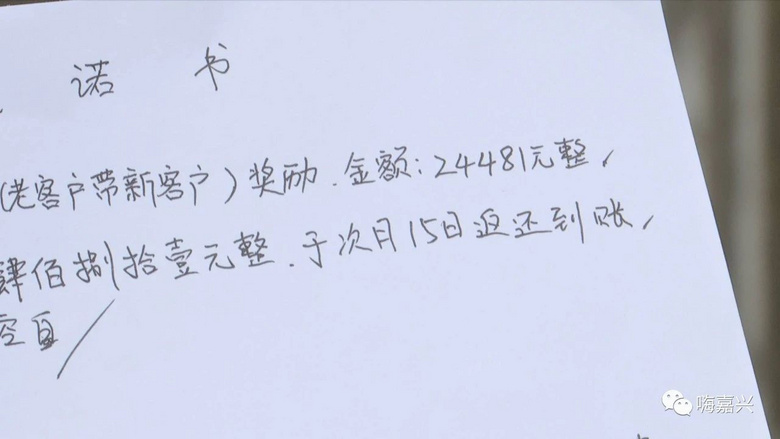 诺 书
(老客户带新客户)奖励.金额:24481元整,
肆佰捌拾壹元整.于次月15日返还到账,
嗨嘉兴